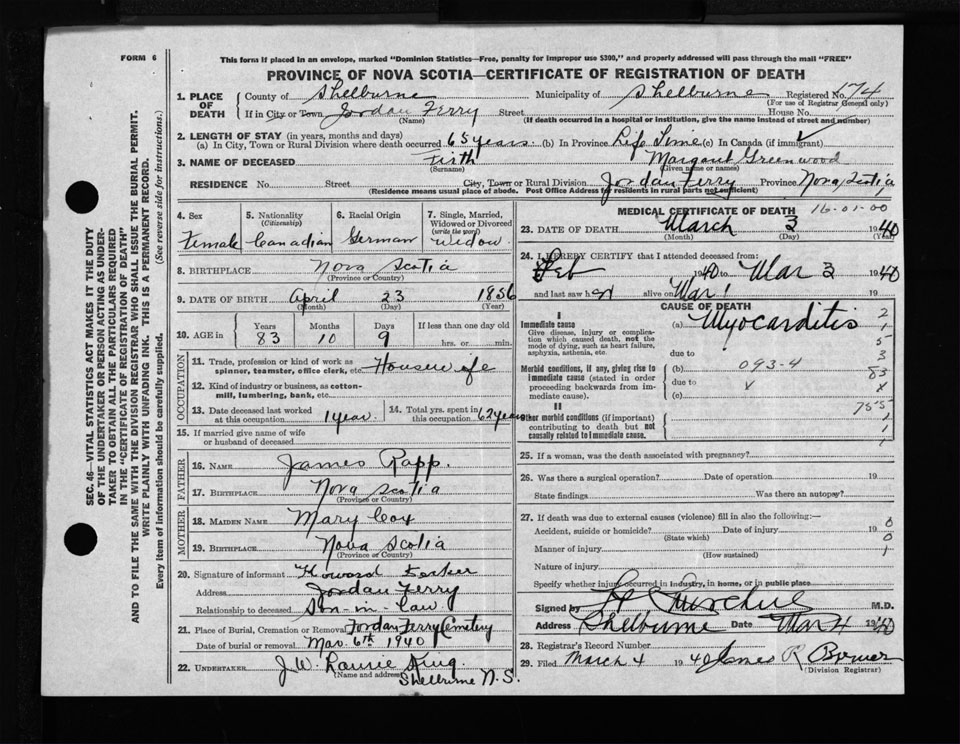 FORM 6
This form if placed in an envelope, marked "Dominion Statistics—Free, penalty for improper use $300," and properly addressed will pass through the mail "FREE"
PROVINCE OF NOVA SCOTIA—CERTIFICATE OF REGISTRATION OF DEATH
SEC. 46—VITAL STATISTICS ACT MAKES IT THE DUTY
OF THE UNDERTAKER OR PERSON ACTING AS UNDER-
TAKER TO OBTAIN ALL THE PARTICULARS REQUIRED
IN THE "CERTIFICATE OF REGISTRATION OF DEATH"
AND TO FILE THE SAME WITH THE DIVISION REGISTRAR WHO SHALL ISSUE THE BURIAL PERMIT.
WRITE PLAINLY WITH UNFADING INK. THIS IS A PERMANENT RECORD.
Every item of information should be carefully supplied. (See reverse side for instructions.)
1. PLACE OF DEATH County of Shelburne Municipality of Shelburne Registered No. 174
(For use of Registrar General only)
If in City or Town Jordan Ferry Street House No.
(Name) (If death occurred in a hospital or institution, give the name instead of street and number)
2. LENGTH OF STAY (in years, months and days)
(a) In City, Town or Rural Division where death occurred 65 years (b) In Province Life Time (c) In Canada (if immigrant)
3. NAME OF DECEASED Firth Margaret Greenwood
(Surname) (Given name or names)
RESIDENCE No. Street City, Town or Rural Division Jordan Ferry Province Nova Scotia
(Residence means usual place of abode. Post Office Address for residents in rural parts not sufficient)
4. Sex Female
5. Nationality (Citizenship) Canadian
6. Racial Origin German
7. Single, Married, Widowed or Divorced (write the word) Widow
8. BIRTHPLACE Nova Scotia
(Province or Country)
9. DATE OF BIRTH April 23 1856
(Month) (Day) (Year)
10. AGE in Years 83 Months 10 Days 9 If less than one day old hrs. or min.
OCCUPATION
11. Trade, profession or kind of work as spinner, teamster, office clerk, etc. Housewife
12. Kind of industry or business, as cotton-mill, lumbering, bank, etc.
13. Date deceased last worked at this occupation 1 year 14. Total yrs. spent in this occupation 62 years
15. If married give name of wife or husband of deceased
FATHER
16. NAME James Rapp.
17. BIRTHPLACE Nova Scotia
(Province or Country)
MOTHER
18. MAIDEN NAME Mary Cox
19. BIRTHPLACE Nova Scotia
(Province or Country)
20. Signature of informant Howard
Address Jordan Ferry
Relationship to deceased Son-in-law
21. Place of Burial, Cremation or Removal Jordan Ferry Cemetery
Date of burial or removal Mar. 6th 1940
22. UNDERTAKER J.W. Laurie King.
(Name and address) Shelburne N.S.
MEDICAL CERTIFICATE OF DEATH 16-01-00
23. DATE OF DEATH March 3 1940
(Month) (Day) (Year)
24. I HEREBY CERTIFY that I attended deceased from:
Feb 1940 to Mar 3 1940
and last saw her alive on Mar 1 19
CAUSE OF DEATH
I
Immediate cause (a) Myocarditis
Give disease, injury or complication which caused death, not the mode of dying, such as heart failure, asphyxia, asthenia, etc.
due to
Morbid conditions, if any, giving rise to immediate cause (stated in order proceeding backwards from immediate cause).
(b) 093-4
due to
(c)
II
Other morbid conditions (if important) contributing to death but not causally related to immediate cause.
2
1
5
3
83
X
755
1
1
25. If a woman, was the death associated with pregnancy?
26. Was there a surgical operation? Date of operation 19
State findings Was there an autopsy?
27. If death was due to external causes (violence) fill in also the following:—
Accident, suicide or homicide? Date of injury 19
(State which)
Manner of injury
(How sustained)
Nature of injury
Specify whether injury occurred in industry, in home, or in public place
0
0
1
Signed by M.D.
Address Shelburne Date Mar 4 1940
28. Registrar's Record Number
29. Filed March 4 1940 James R Bower
(Division Registrar)